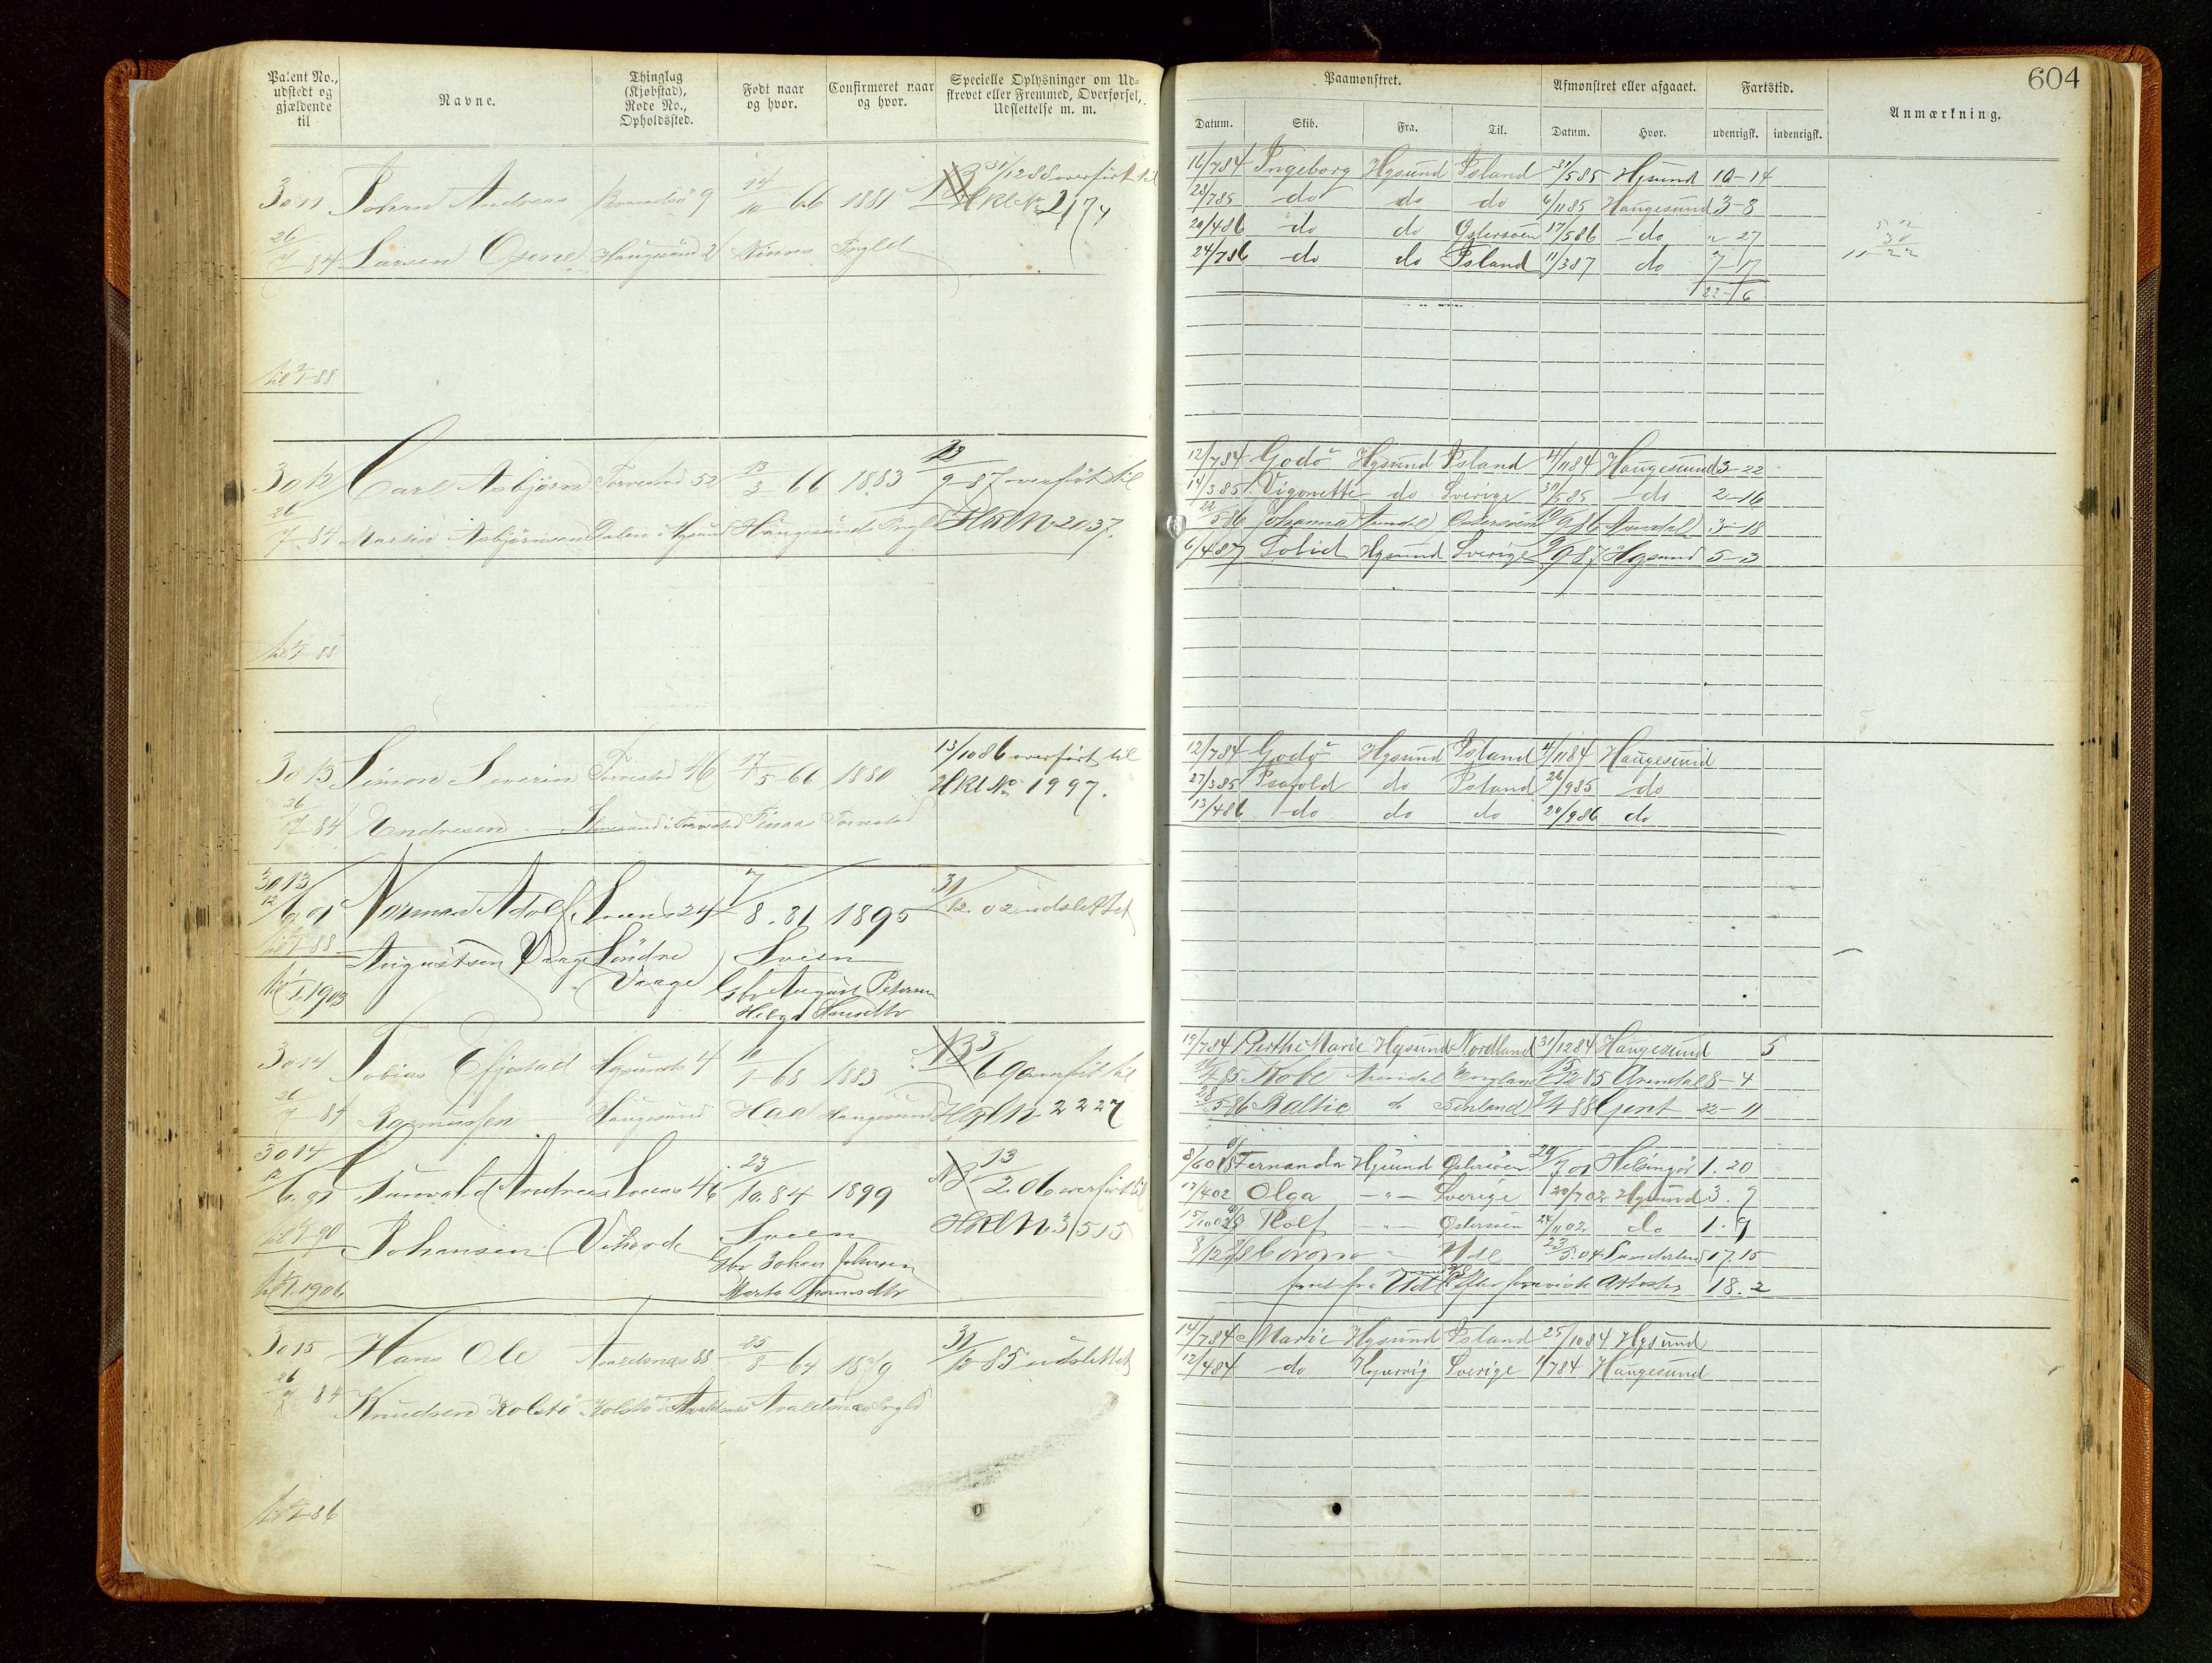 Patent No.,
udstedt og
gjældende
til
Navne.
Thinglag
(Kjøbstad),
Rode No.,
Opholdssted.
Født naar
og hvor.
Confirmeret naar
og hvor.
Specielle Oplysninger om Ud-
skrevet eller Fremmed, Overførsel,
Udslettelse m. m.
3011 Johan Andreas 9 14/10 66 1881 31/12 88 overført til
HKl No 2174
26/7 84 Larsen Haugesund 2
til 1/1 88
3012 Carl Asbjørn Torvestad 52 13/3 66 1883 9-87 overført til
26/7 84 Martin Asbjørnsen Dalen i Hgsund Haugesund HKl N 2037.
til 1/1 88
3013 Simon Severin Torvestad 46 17/5 66 1880 13/10 86 overført til
HKl No 1997.
26/7 84 Endresen i Torvestad Torvestad
3013
12/6 01 Norman Adolf Sveens 24 7/8. 81 1895 31/12. 02 udslettet
til 1/1 88
Augustsen Vaage Søndre Sveen
til 1/1 1903 Vaage August Petersen
Helga Hansdtr
3014 Tobias Hgsunds 4 10/1 68 1883 NB 3/6 90 overført til
26/7 84 Rasmussen Haugesund Haugesund HKl N 2227
3014
12/6. 01 Sunvald Andreas Sveens 46 23/10. 84 1899 NB 13/2. 06 overført til
til 1/1 90 Johansen Sveen HKl N 3515
til 1/1. 1906 Johan Johnsen
Marta
3015 Hans Ole Avaldsnæs 88 25/8 64 1879 31/12 85 udslettet
26/7 84 Knudsen Kolstø Kolstø i Avaldsnæs Avaldsnæs
til 1/1 86
604
Paamønstret.
Afmønstret eller afgaaet.
Fartstid.
Anmærkning.
Datum. Skib. Fra. Til. Datum. Hvor. udenrigsk. indenrigsk.
16/7 84 Ingeborg Hgsund Island 31/5 85 Hgsund 10-14
28/7 85 do do do 6/11 85 Haugesund 3-8
20/4 86 do do Østersøen 17/5 86 do " 27
24/7 86 do do Island 11/3 87 do 7-17
22-6
11-22
12/7 84 Godø Hgsund Island 4/11 84 Haugesund 3-22
14/3 85 Vigonette do Sverige 30/5 85 do 2-16
22/5 86 Johanna Arendal Østersøen Arendal 3-18
6/4 87 Solid Hgsund Sverige 9/9 87 Hgsund 5-3
12/7 84 Godø Hgsund Island 4/11 84 Haugesund
27/3 85 Isafold do Island 26/9 85 do
13/4 86 do do do 20/9 86 do
19/7 84 Berthe Marie Hgsund Nordland 31/12 84 Haugesund 5
Arendal England 15/12 85 Arendal 8-4
28/5 86 Baltic do Finland 88 Gent 22-11
Fernanda Hgsund Østersøen 29/7 01 Helsingør 1. 20
17/4 02 Olga -"- Sverige 20/7 02 Hgsund 3. 9
15/10 02 Rolf -"- Østersøen 24/11 02 do 1. 9
Ude 23/5. 04 Sunderland 17. 15
faret fra Udl efter foreviste Attester 18. 2
14/7 84 Marie Hgsund Island 25/10 84 Hgsund
12/4 84 do Sverige 1/7 84 Haugesund